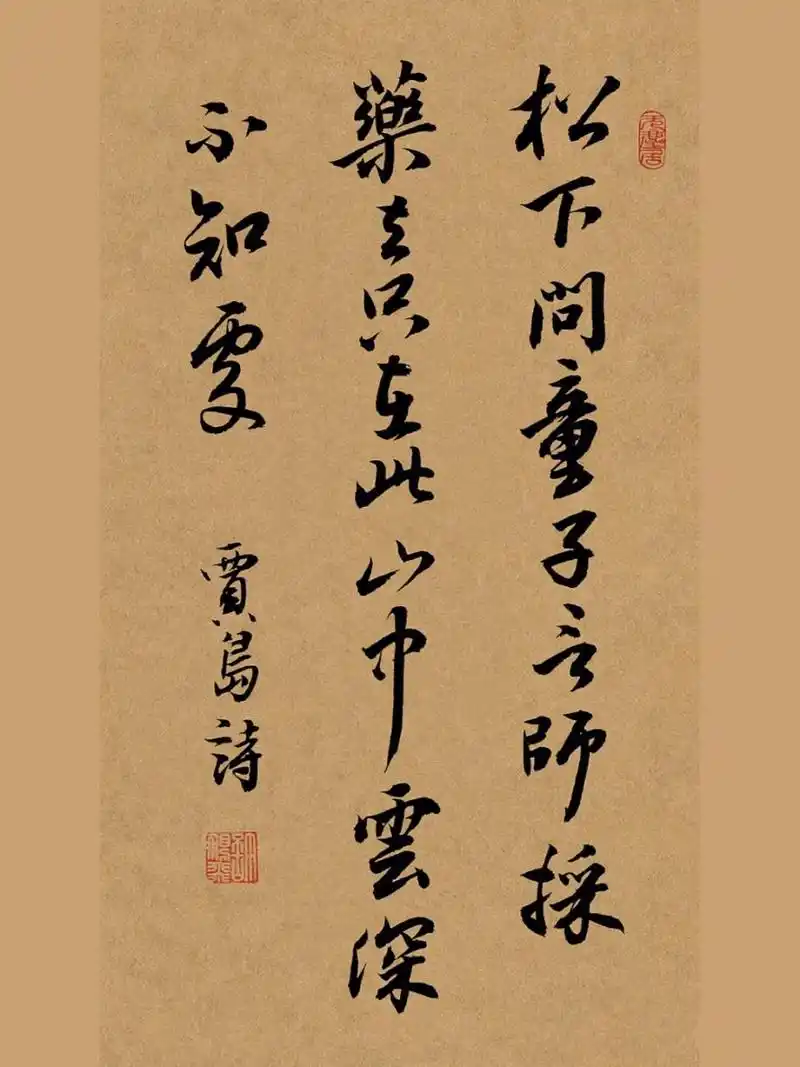 松下問童子言師採
藥去只在此山中雲深
不知處
賈島詩